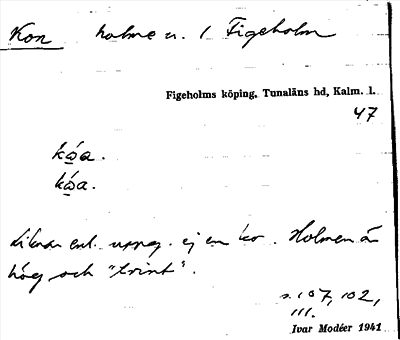 Kon holme n. / Figeholm
Figeholms köping, Tunaläns hd, Kalm. l.
47
kωa.
kωa.
Liknar enl. uppg. ej en ko. Holmen är
hög och "trint".
s. 107, 102,
111.
Ivar Modéer 1941